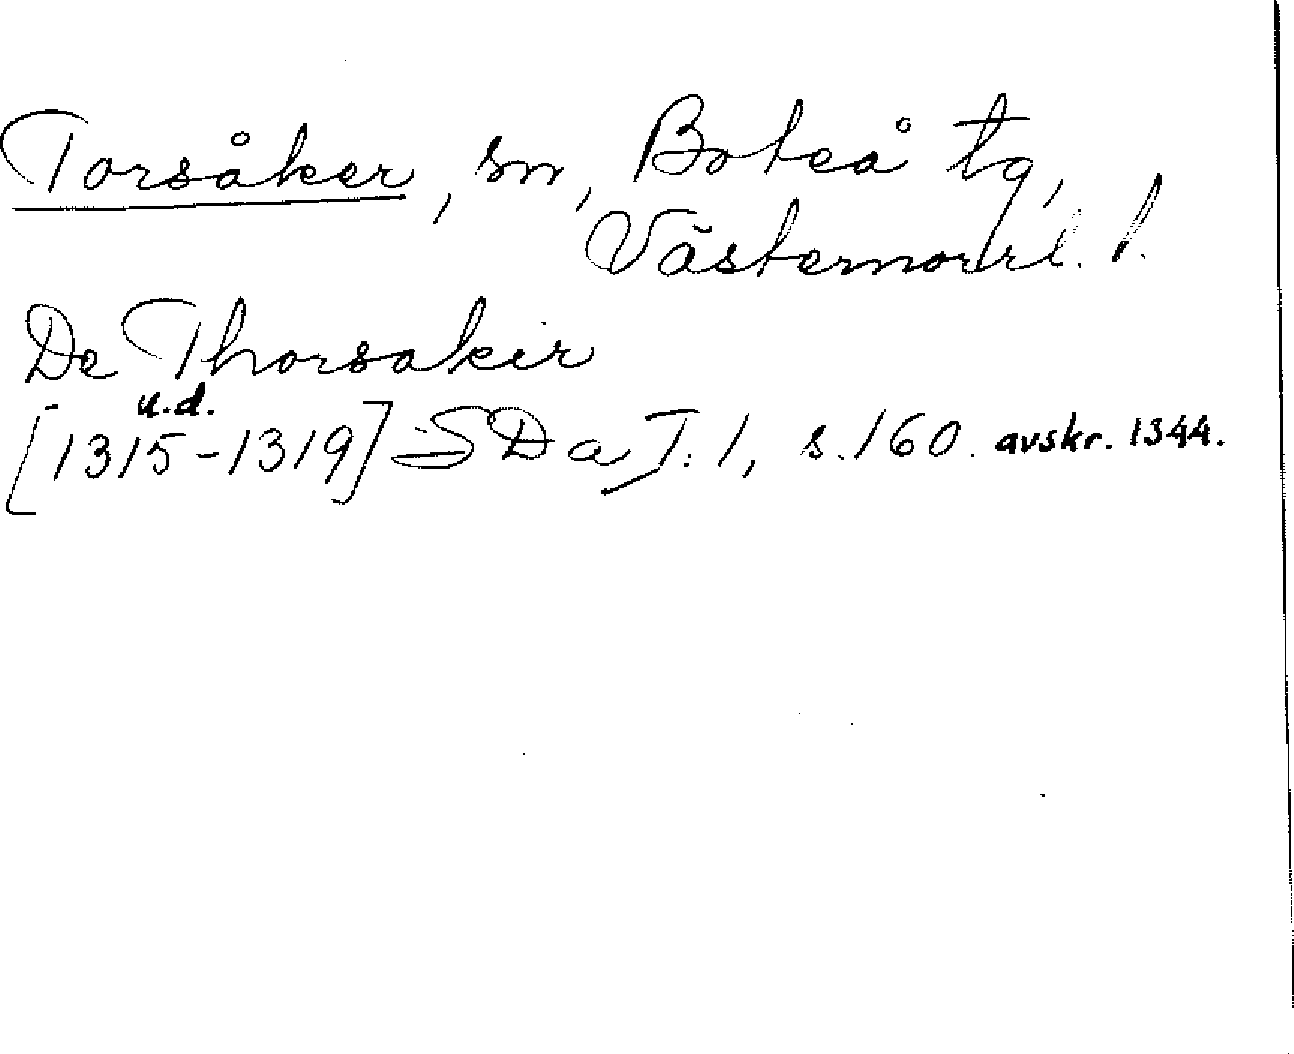 Torsåker, sn, Boteå tg,
Västernorrl. l.
De Thorsakir
u.d.
[1315-1319] SD a I: 1, s. 160. avskr. 1344.